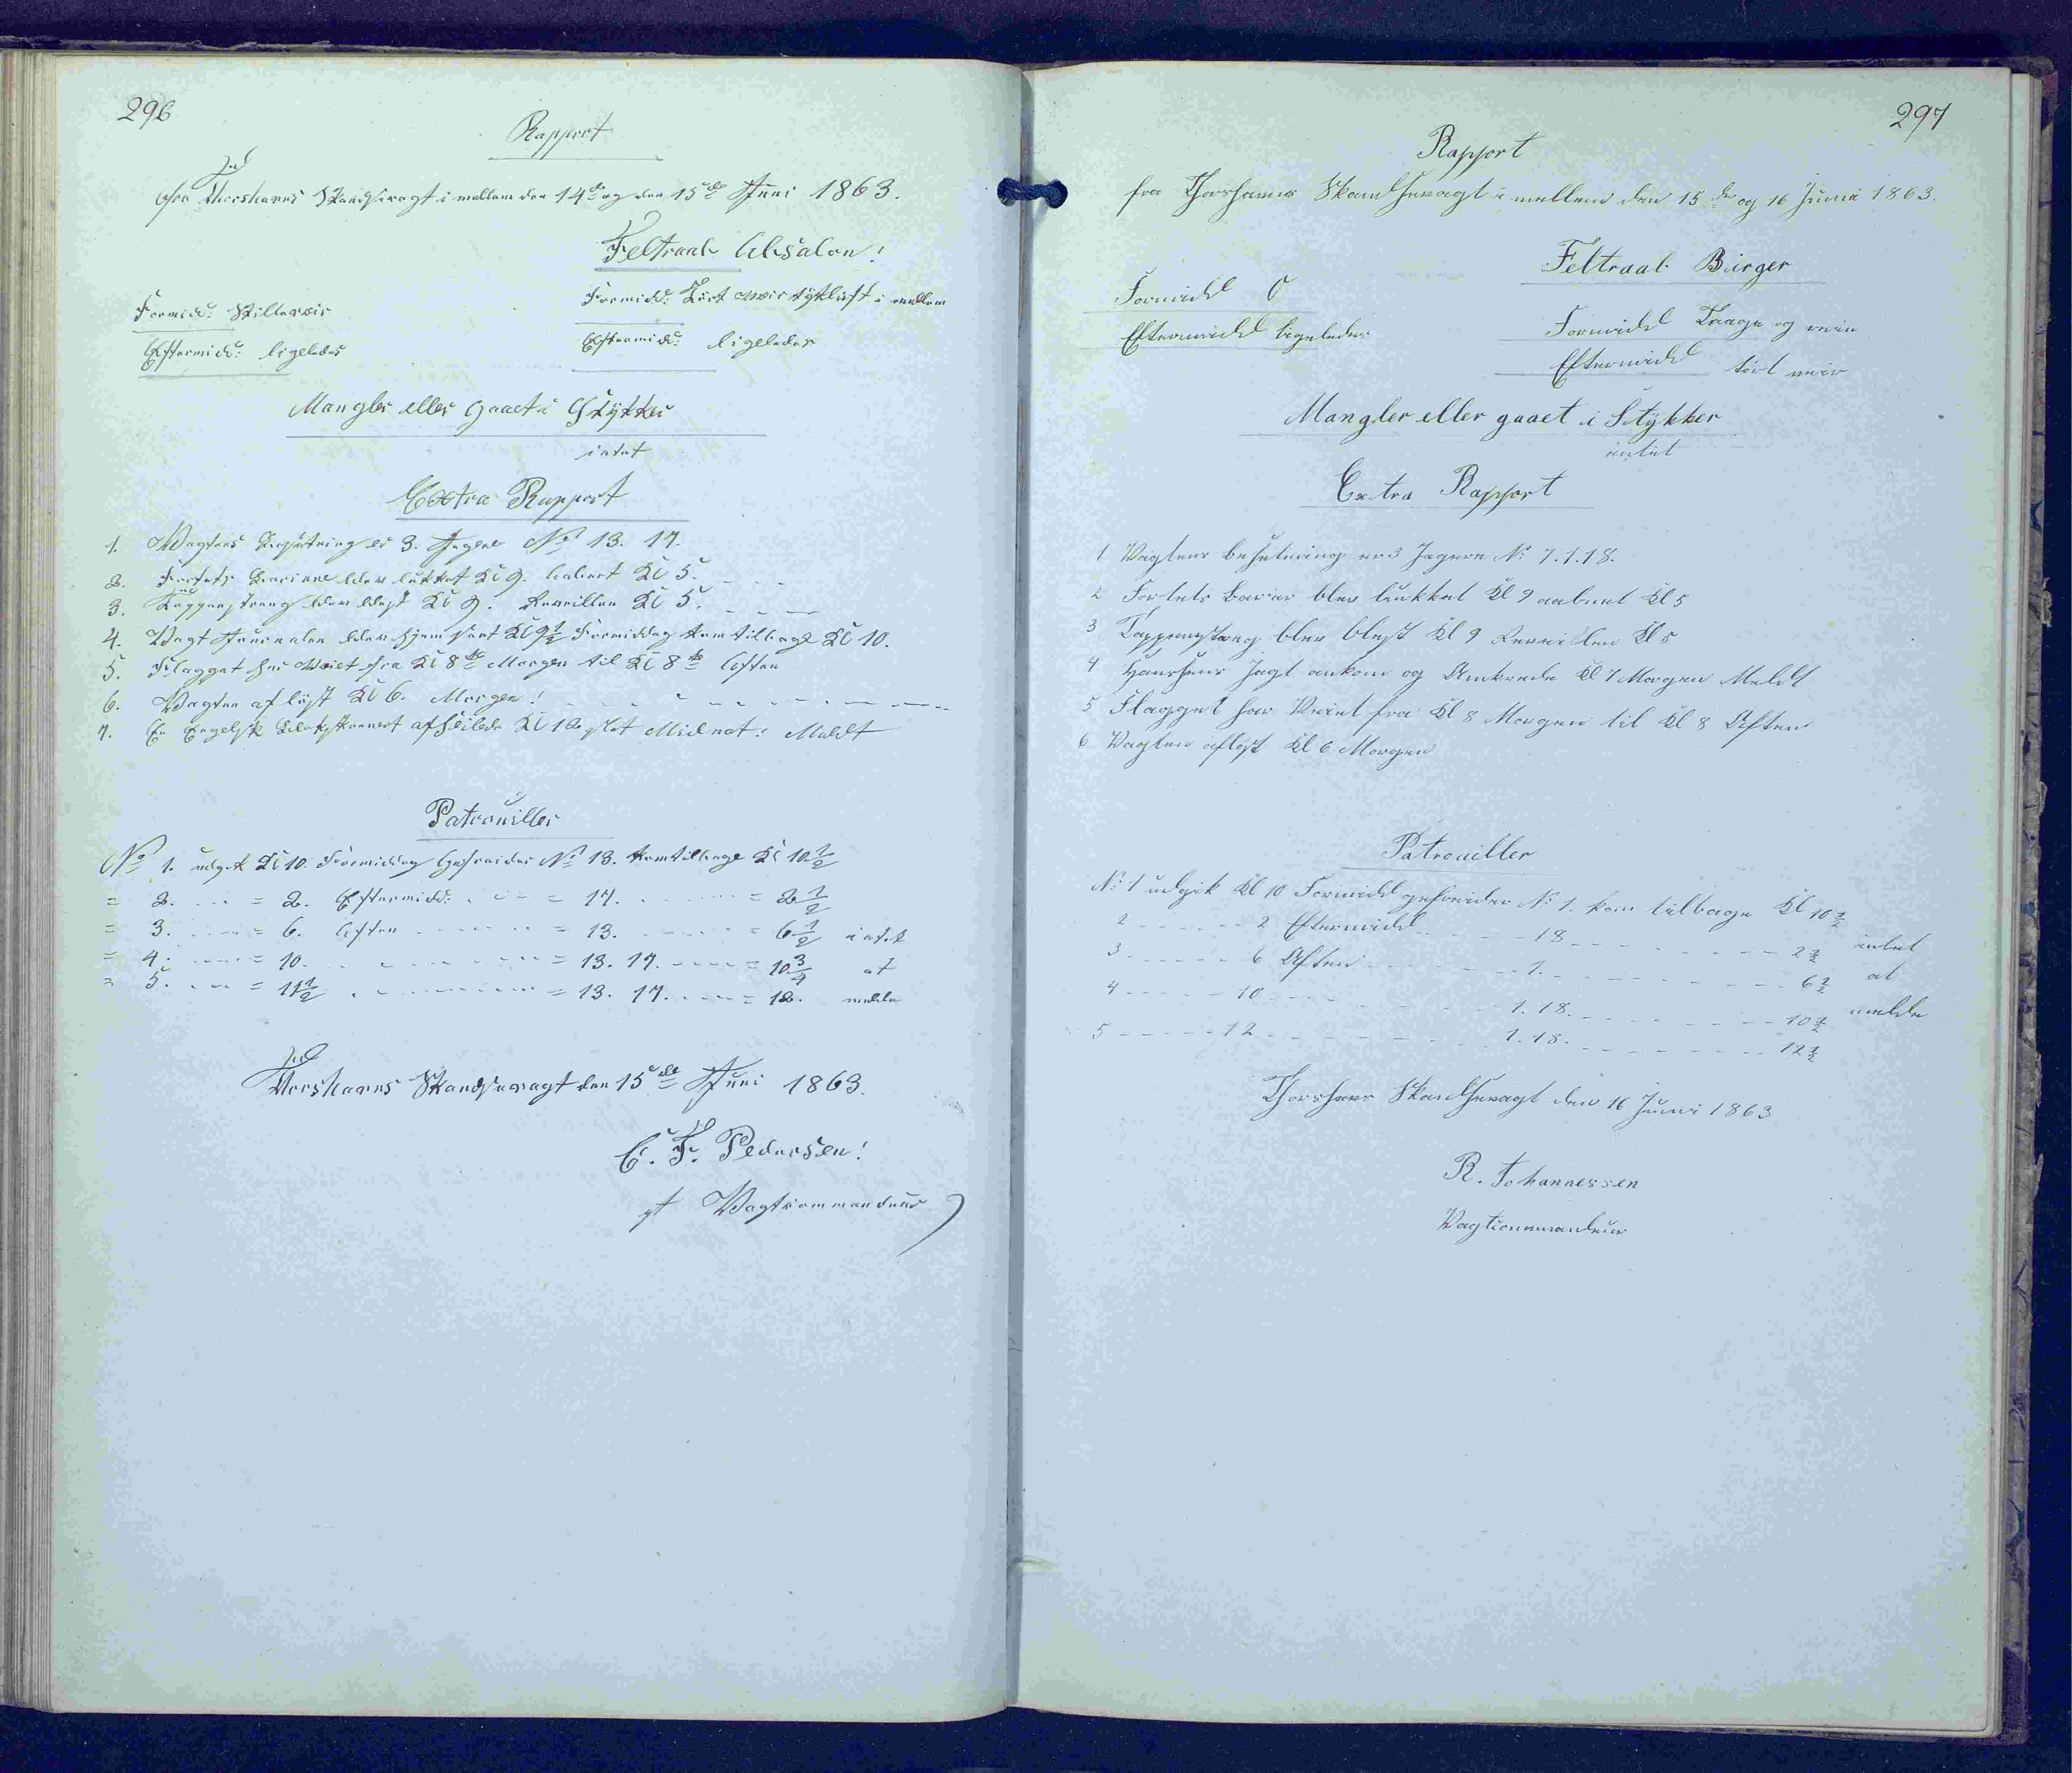 296
Rapport
fra Thorshavns Skandsevagt i mellem den 14de og den 15de Juni 1863.
Feltraab Absalon!
Formidd: Stilleveir
Formidd: Tört veir tyk luft i mellem
Eftermidd: ligeledes
Eftermidd: ligeledes
Mangler eller gaaet i Stykker
intet
Extra Rapport
1. Vagtens Besætning er 3. Jægere No 13. 17.
2. Fortets Bariere blev lukket Kl 9. aabnet Kl 5.
3. Tappenstreng blev blæst Kl 9. Reveillen Kl 5.
4. Vagt Journalen blev hjem sent Kl 9½ Formiddag kom tilbage Kl 10.
5. Flagget har Veiet fra Kl 8te Morgen til Kl 8te Aften
6. Vagten aflöst Kl 6. Morgen!
7. En Engelsk afseilede Kl 12 slet Midnat! Meldt
Patrouiller
No 1. udgik Kl 10. Formiddag Gefreider No 13. kom tilbage Kl 10½
= 2. = 2. Eftermidd: = 17. = 2½
= 3. = 6. Aften = 13. = 6½ intet
= 4. = 10. = 13. 17. = 10¾ at
= 5. = 11½ = 13. 17. = 12. melde
Thorshavns Skandsevagt den 15de Juni 1863.
C. F. Pedersen!
Vagtcommandeur
297
Rapport
fra Thorshavns Skandsevagt i mellem den 15de og 16 Junii 1863.
Feltraab Bürger
Formidd O
Formidd Taage og veir
Eftermidd ligeledes
Eftermidd tört veir
Mangler eller gaaet i Stykker
intet
Extra Rapport
1 Vagtens besetning er 3 Jagere No 7.1.18.
2 Fortets Barier blev lukket Kl 9 aabnet Kl 5
3 Tappenstreng blev blæst Kl 9 Reveillen Kl 5
4 Jagt ankom og Ankrede Kl 7 Morgen Meldt
5 Flagget har Veiet fra Kl 8 Morgen til Kl 8 Aften
6 Vagten aflöst Kl 6 Morgen
Patrouiller
No 1 udgik Kl 10 Formidd gefreider No 1. kom tilbage Kl 10½
2 2 Eftermidd 18 2½ intet
3 6 Aften 1. 6½ at
4 10 1. 18. 10½ melde
5 12 1. 18. 12½
Thorshavn Skandsevagt den 16 Junii 1863
R. Johannessen
Vagtcommandeur